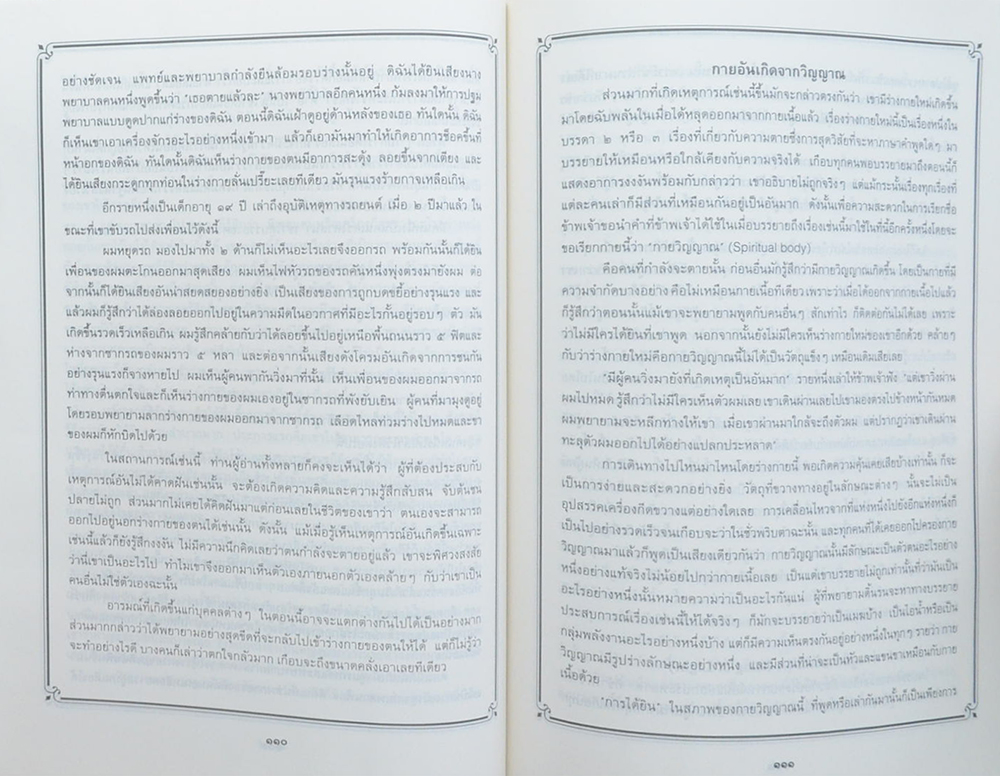 อย่างชัดเจน แพทย์และพยาบาลกำลังยืนล้อมรอบร่างนั้นอยู่ ดิฉันได้ยินเสียงนาง
พยาบาลคนหนึ่งพูดขึ้นว่า "เธอตายแล้วละ" นางพยาบาลอีกคนหนึ่ง ก้มลงมาให้การปฐม
พยาบาลแบบดูดปากแก่ร่างของดิฉัน ตอนนี้ดิฉันเฝ้าดูอยู่ด้านหลังของเธอ ทันใดนั้น ดิฉัน
ก็เห็นเขาเอาเครื่องจักรอะไรอย่างหนึ่งเข้ามา แล้วก็เอามันมาทำให้เกิดอาการช็อคขึ้นที่
หน้าอกของดิฉัน ทันใดนั้นดิฉันเห็นร่างกายของตนมีอาการสะดุ้ง ลอยขึ้นจากเตียง และ
ได้ยินเสียงกระดูกทุกท่อนในร่างกายลั่นเปรี๊ยะเลยทีเดียว มันรุนแรงร้ายกาจเหลือเกิน
อีกรายหนึ่งเป็นเด็กอายุ ๑๙ ปี เล่าถึงอุบัติเหตุทางรถยนต์ เมื่อ ๒ ปีมาแล้ว ใน
ขณะที่เขาขับรถไปส่งเพื่อนไว้ดังนี้
ผมหยุดรถ มองไปมาทั้ง ๒ ด้านก็ไม่เห็นอะไรเลยจึงออกรถ พร้อมกันนั้นก็ได้ยิน
เพื่อนของผมตะโกนออกมาสุดเสียง ผมเห็นไฟหัวรถของรถคันหนึ่งพุ่งตรงมายังผม ต่อ
จากนั้นก็ได้ยินเสียงอันน่าสยดสยองอย่างยิ่ง เป็นเสียงของการถูกบดขยี้อย่างรุนแรง และ
แล้วผมก็รู้สึกว่าได้ล่องลอยออกไปอยู่ในความมืดในอวกาศที่มีอะไรกันอยู่รอบๆ ตัว มัน
เกิดขึ้นรวดเร็วเหลือเกิน ผมรู้สึกคล้ายกับว่าได้ลอยขึ้นไปอยู่เหนือพื้นถนนราว ๕ ฟิตและ
ห่างจากซากรถของผมราว ๕ หลา และต่อจากนั้นเสียงดังโครมอันเกิดจากการชนกัน
อย่างรุนแรงก็จางหายไป ผมเห็นผู้คนพากันวิ่งมาที่นั้น เห็นเพื่อนของผมออกมาจากรถ
ท่าทางตื่นตกใจและก็เห็นร่างของผมเองอยู่ในซากรถที่พังยับเยิน ผู้คนที่มามุงดูอยู่
โดยรอบพยายามลากร่างกายของผมออกมาจากซากรถ เลือดไหลท่วมร่างไปหมดและขา
ของผมก็หักบิดไปด้วย
ในสถานการณ์เช่นนี้ ท่านผู้อ่านทั้งหลายก็คงจะเห็นได้ว่า ผู้ที่ต้องประสบกับ
เหตุการณ์อันไม่ได้คาดฝันเช่นนั้น จะต้องเกิดความคิดและความรู้สึกสับสน จับต้นชน
ปลายไม่ถูก ส่วนมากไม่เคยได้คิดฝันมาแต่ก่อนเลยในชีวิตของเขาว่า ตนเองจะสามารถ
ออกไปอยู่นอกร่างกายของตนได้เช่นนั้น ดังนั้น แม้เมื่อรู้เห็นเหตุการณ์อันเกิดขึ้นเฉพาะ
เช่นนี้แล้วก็ยังรู้สึกงงงัน ไม่มีความนึกคิดเลยว่าตนกำลังจะตายอยู่แล้ว เขาจะพิศวงสงสัย
ว่านี่เขาเป็นอะไรไป ทำไมเขาจึงออกมาเห็นตัวเองภายนอกตัวเองคล้ายๆ กับว่าเขาเป็น
คนอื่นไม่ใช่ตัวเองฉะนั้น
อารมณ์ที่เกิดขึ้นแก่บุคคลต่างๆ ในตอนนี้อาจจะแตกต่างกันไปได้เป็นอย่างมาก
ส่วนมากกล่าวว่าได้พยายามอย่างสุดขีดที่จะกลับไปเข้าร่างกายของตนให้ได้ แต่ก็ไม่รู้ว่า
จะทำอย่างไรดี บางคนก็เล่าว่าตกใจกลัวมาก เกือบจะถึงขนาดคลั่งเอาเลยทีเดียว
๑๑๐
กายอันเกิดจากวิญญาณ
ส่วนมากที่เกิดเหตุการณ์เช่นนี้ขึ้นมักจะกล่าวตรงกันว่า เขามีร่างกายใหม่เกิดขึ้น
มาโดยฉับพลันในเมื่อได้หลุดออกมาจากกายเนื้อแล้ว เรื่องร่างกายใหม่นี้เป็นเรื่องหนึ่งใน
บรรดา ๒ หรือ ๓ เรื่องที่เกี่ยวกับความตายซึ่งการสุดวิสัยที่จะหาภาษาคำพูดใดๆ มา
บรรยายให้เหมือนหรือใกล้เคียงกับความจริงได้ เกือบทุกคนพอบรรยายมาถึงตอนนี้ก็
แสดงอาการงงงันพร้อมกับกล่าวว่า เขาอธิบายไม่ถูกจริงๆ แต่แม้กระนั้นเรื่องทุกเรื่องที่
แต่ละคนเล่าก็มีส่วนที่เหมือนกันอยู่เป็นอันมาก ดังนั้นเพื่อความสะดวกในการเรียกชื่อ
ข้าพเจ้าขอนำคำที่ข้าพเจ้าได้ใช้ในเมื่อบรรยายถึงเรื่องเช่นนี้มาใช้ในที่นี้อีกครั้งหนึ่งโดยจะ
ขอเรียกกายนี้ว่า "กายวิญญาณ" (Spiritual body)
คือคนที่กำลังจะตายนั้น ก่อนอื่นมักรู้สึกว่ามีกายวิญญาณเกิดขึ้น โดยเป็นกายที่มี
ความจำกัดบางอย่าง คือไม่เหมือนกายเนื้อทีเดียว เพราะว่าเมื่อได้ออกจากกายเนื้อไปแล้ว
ก็รู้สึกว่าตอนนั้นแม้เขาจะพยายามพูดกับคนอื่นๆ สักเท่าไร ก็ติดต่อกันไม่ได้เลย เพราะ
ว่าไม่มีใครได้ยินที่เขาพูด นอกจากนั้นยังไม่มีใครเห็นร่างกายใหม่ของเขาอีกด้วย คล้ายๆ
กับว่าร่างกายใหม่คือกายวิญญาณนี้ไม่ได้เป็นวัตถุแข็งๆ เหมือนเดิมเสียเลย
"มีผู้คนวิ่งมายังที่เกิดเหตุเป็นอันมาก" รายหนึ่งเล่าให้ข้าพเจ้าฟัง "แต่เขาวิ่งผ่าน
ผมไปหมด รู้สึกว่าไม่มีใครเห็นตัวผมเลย เขาเดินผ่านเลยไปเขามองตรงไปข้างหน้ากันหมด
ผมพยายามจะหลีกทางให้เขา เมื่อเขาผ่านมาใกล้จะถึงตัวผม แต่ปรากฏว่าเขาเดินผ่าน
ทะลุตัวผมออกไปได้อย่างแปลกประหลาด"
การเดินทางไปไหนมาไหนโดยร่างกายนี้ พอเกิดความคุ้นเคยเสียบ้างเท่านั้น ก็จะ
เป็นการง่ายและสะดวกอย่างยิ่ง วัตถุที่ขวางทางอยู่ในลักษณะต่างๆ นั้นจะไม่เป็น
อุปสรรคเครื่องกีดขวางแต่อย่างใดเลย การเคลื่อนไหวจากที่แห่งหนึ่งไปยังอีกแห่งหนึ่งก็
เป็นไปอย่างรวดเร็วจนเกือบจะว่าในชั่วพริบตาฉะนั้น และทุกคนที่ได้เคยออกไปครองกาย
วิญญาณมาแล้วก็พูดเป็นเสียงเดียวกันว่า กายวิญญาณนั้นมีลักษณะเป็นตัวตนอะไรอย่าง
หนึ่งอย่างแท้จริงไม่น้อยไปกว่ากายเนื้อเลย เป็นแต่เขาบรรยายไม่ถูกเท่านั้นที่ว่ามันเป็น
อะไรอย่างหนึ่งนั้นหมายความว่าเป็นอะไรกันแน่ ผู้ที่พยายามดิ้นรนจะหาทางบรรยาย
ประสบการณ์เรื่องเช่นนี้ให้ได้จริงๆ ก็มักจะบรรยายว่าเป็นเมฆบ้าง เป็นไอน้ำหรือเป็น
กลุ่มพลังงานอะไรอย่างหนึ่งบ้าง แต่ก็มีความเห็นตรงกันอยู่อย่างหนึ่งในทุกๆ รายว่า กาย
วิญญาณมีรูปร่างลักษณะอย่างหนึ่ง และมีส่วนที่น่าจะเป็นหัวและแขนขาเหมือนกับกาย
เนื้อด้วย
"การได้ยิน" ในสภาพของกายวิญญาณนี้ ที่พูดหรือเล่ากันมานั้นก็เป็นเพียงการ
๑๑๑